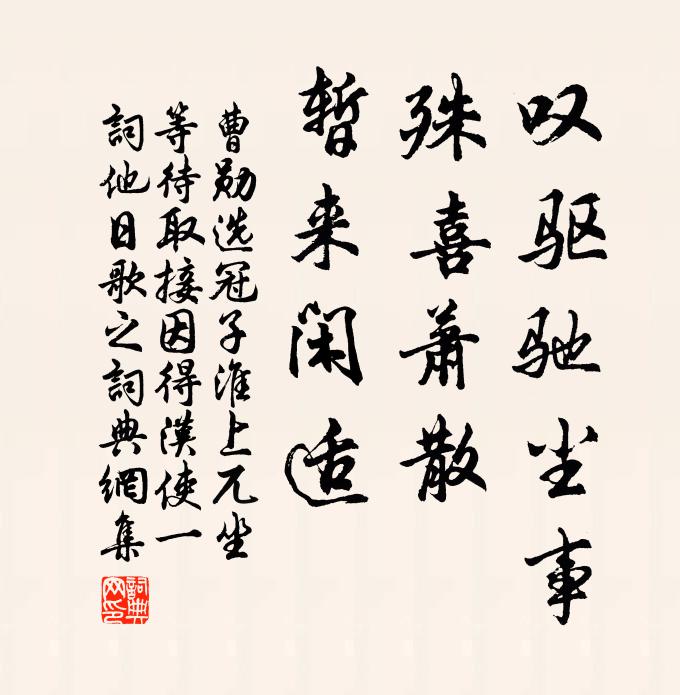 叹驱驰尘事
殊喜萧散
暂来闲适
曹勋选冠子淮上兀坐
等待取接因得汉使一
詞他日歌之詞典網集
詞典网印